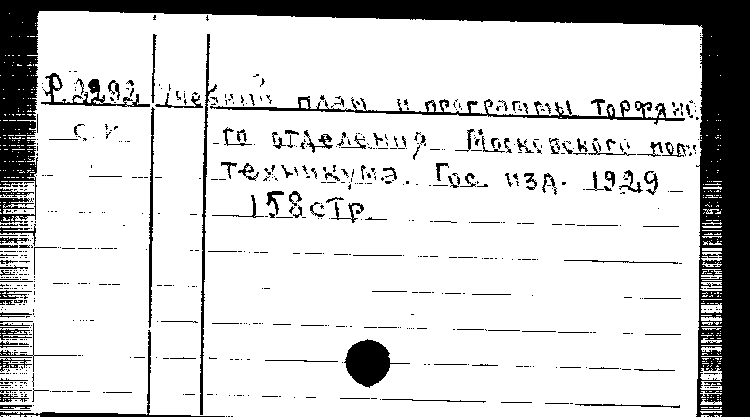 Р.2292 Учебный план и программы торфяно
С.У го отделения Московского поли
техникума. Гос. изд. 1929
158 стр.